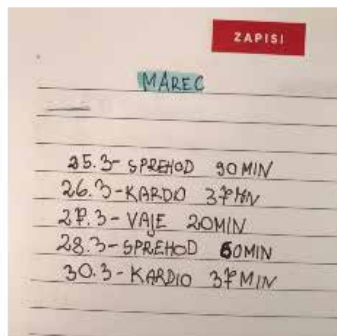 ZAPISI
MAREC
25.3- SPREHOD 90MIN
26.3-KARDO 37MIN
27.3- VAJE 20MIN
28.3-SPREHOD 60MIN
30.3-KARDIO 37MIN